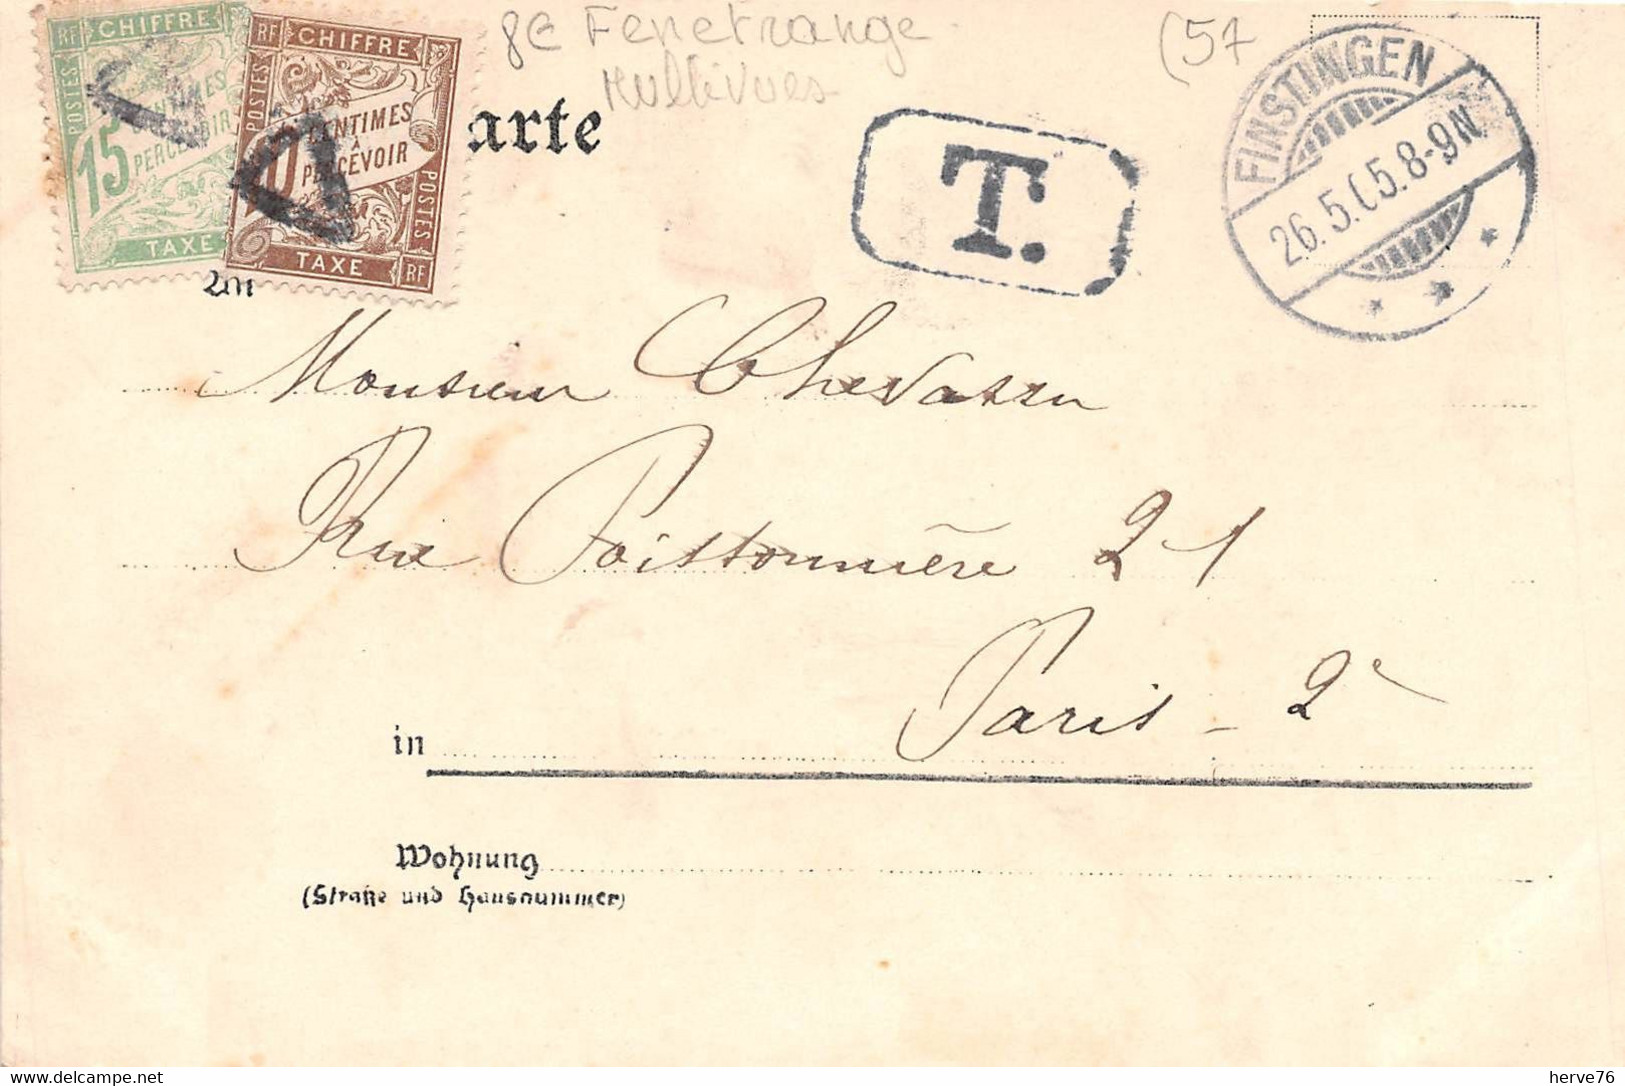 RF CHIFFRE
POSTES
15 CENTIMES
PERCEVOIR
TAXE
RF CHIFFRE
POSTES
10 CENTIMES
À
PERCEVOIR
POSTES
TAXE RF
8€ Fenetrange
Multivues
(57
arte
T.
FINSTINGEN
26.5.05.8-9N.
An
Monsieur Chevassu
Rue Poissonnière 21
Paris - 2e
in
Wohnung
(Straße und Hausnummer)
herve76